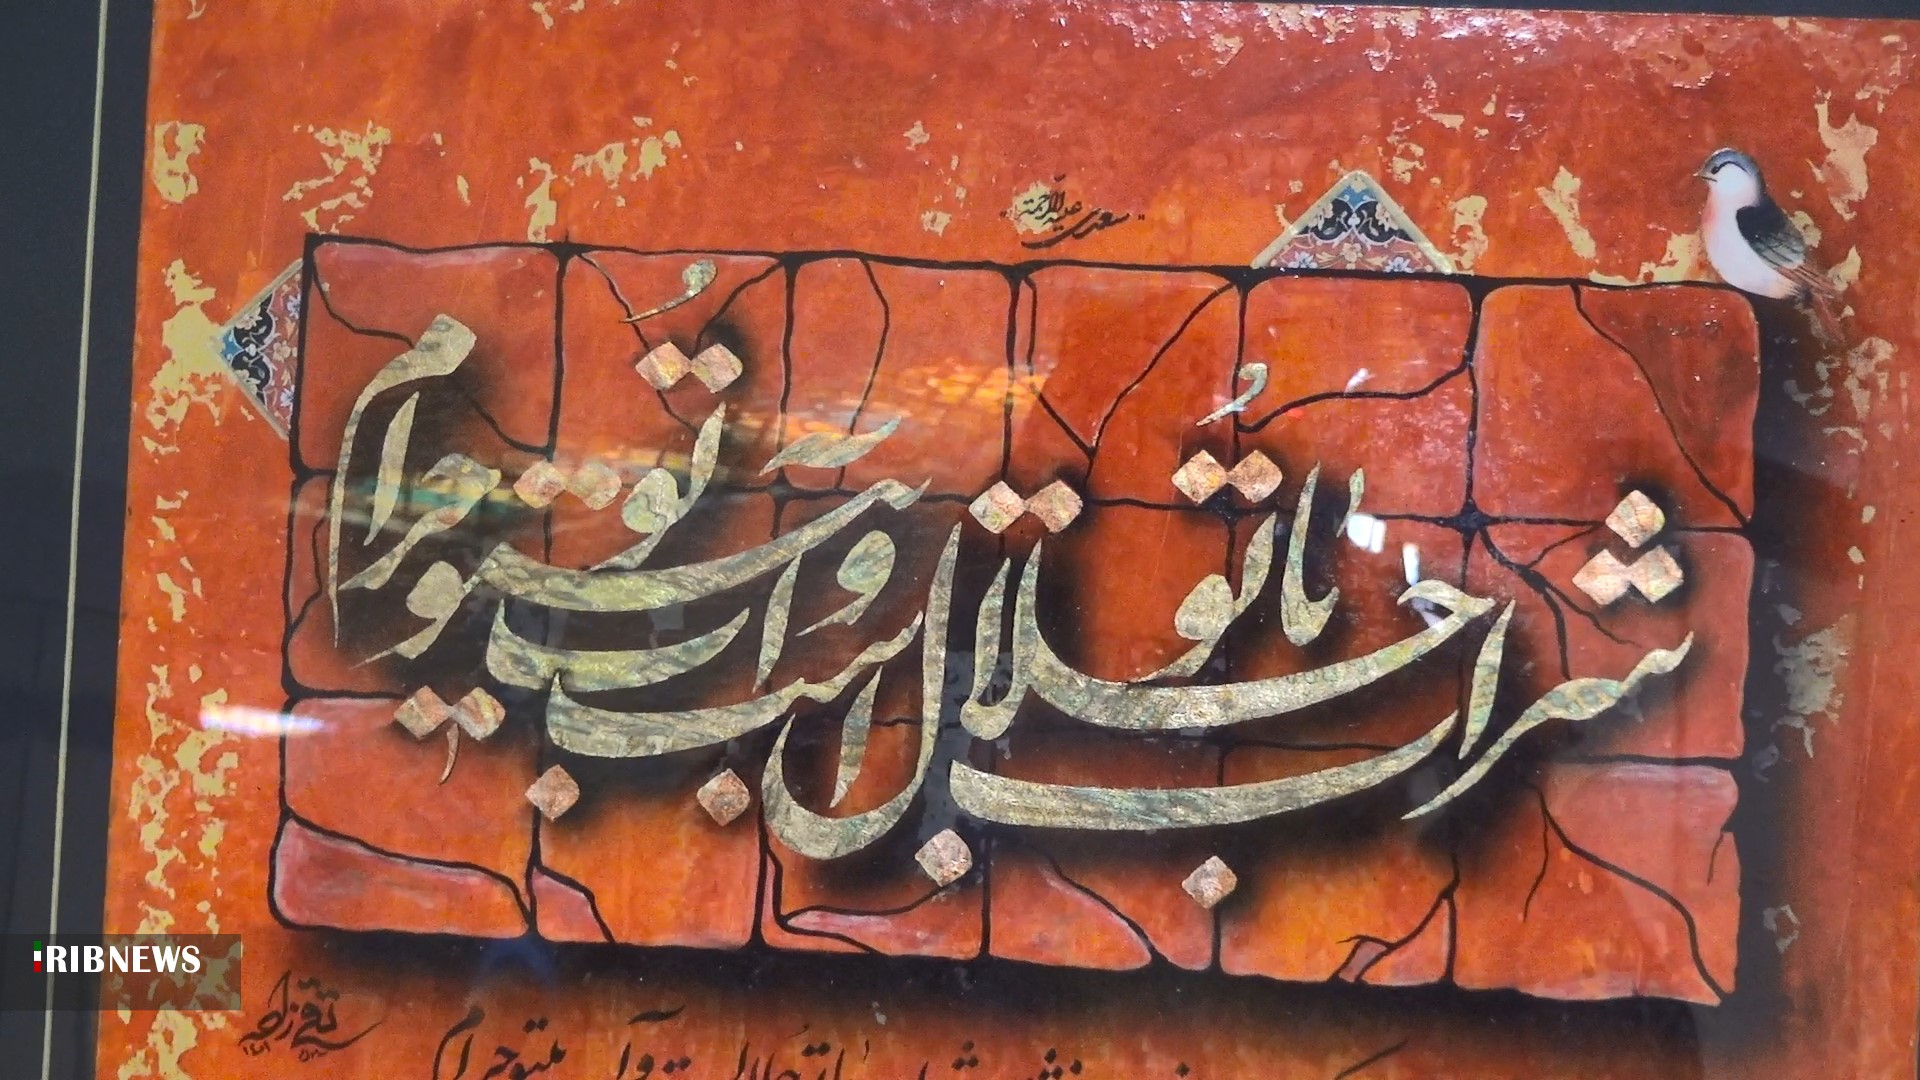 "سعدی علیه‌الرحمة"
شراب با تو حلال است و آب بی تو حرام
IRIBNEWS
تقی‌زاده
۱۴۰۱
شراب با تو حلال است و آب بی‌تو حرام